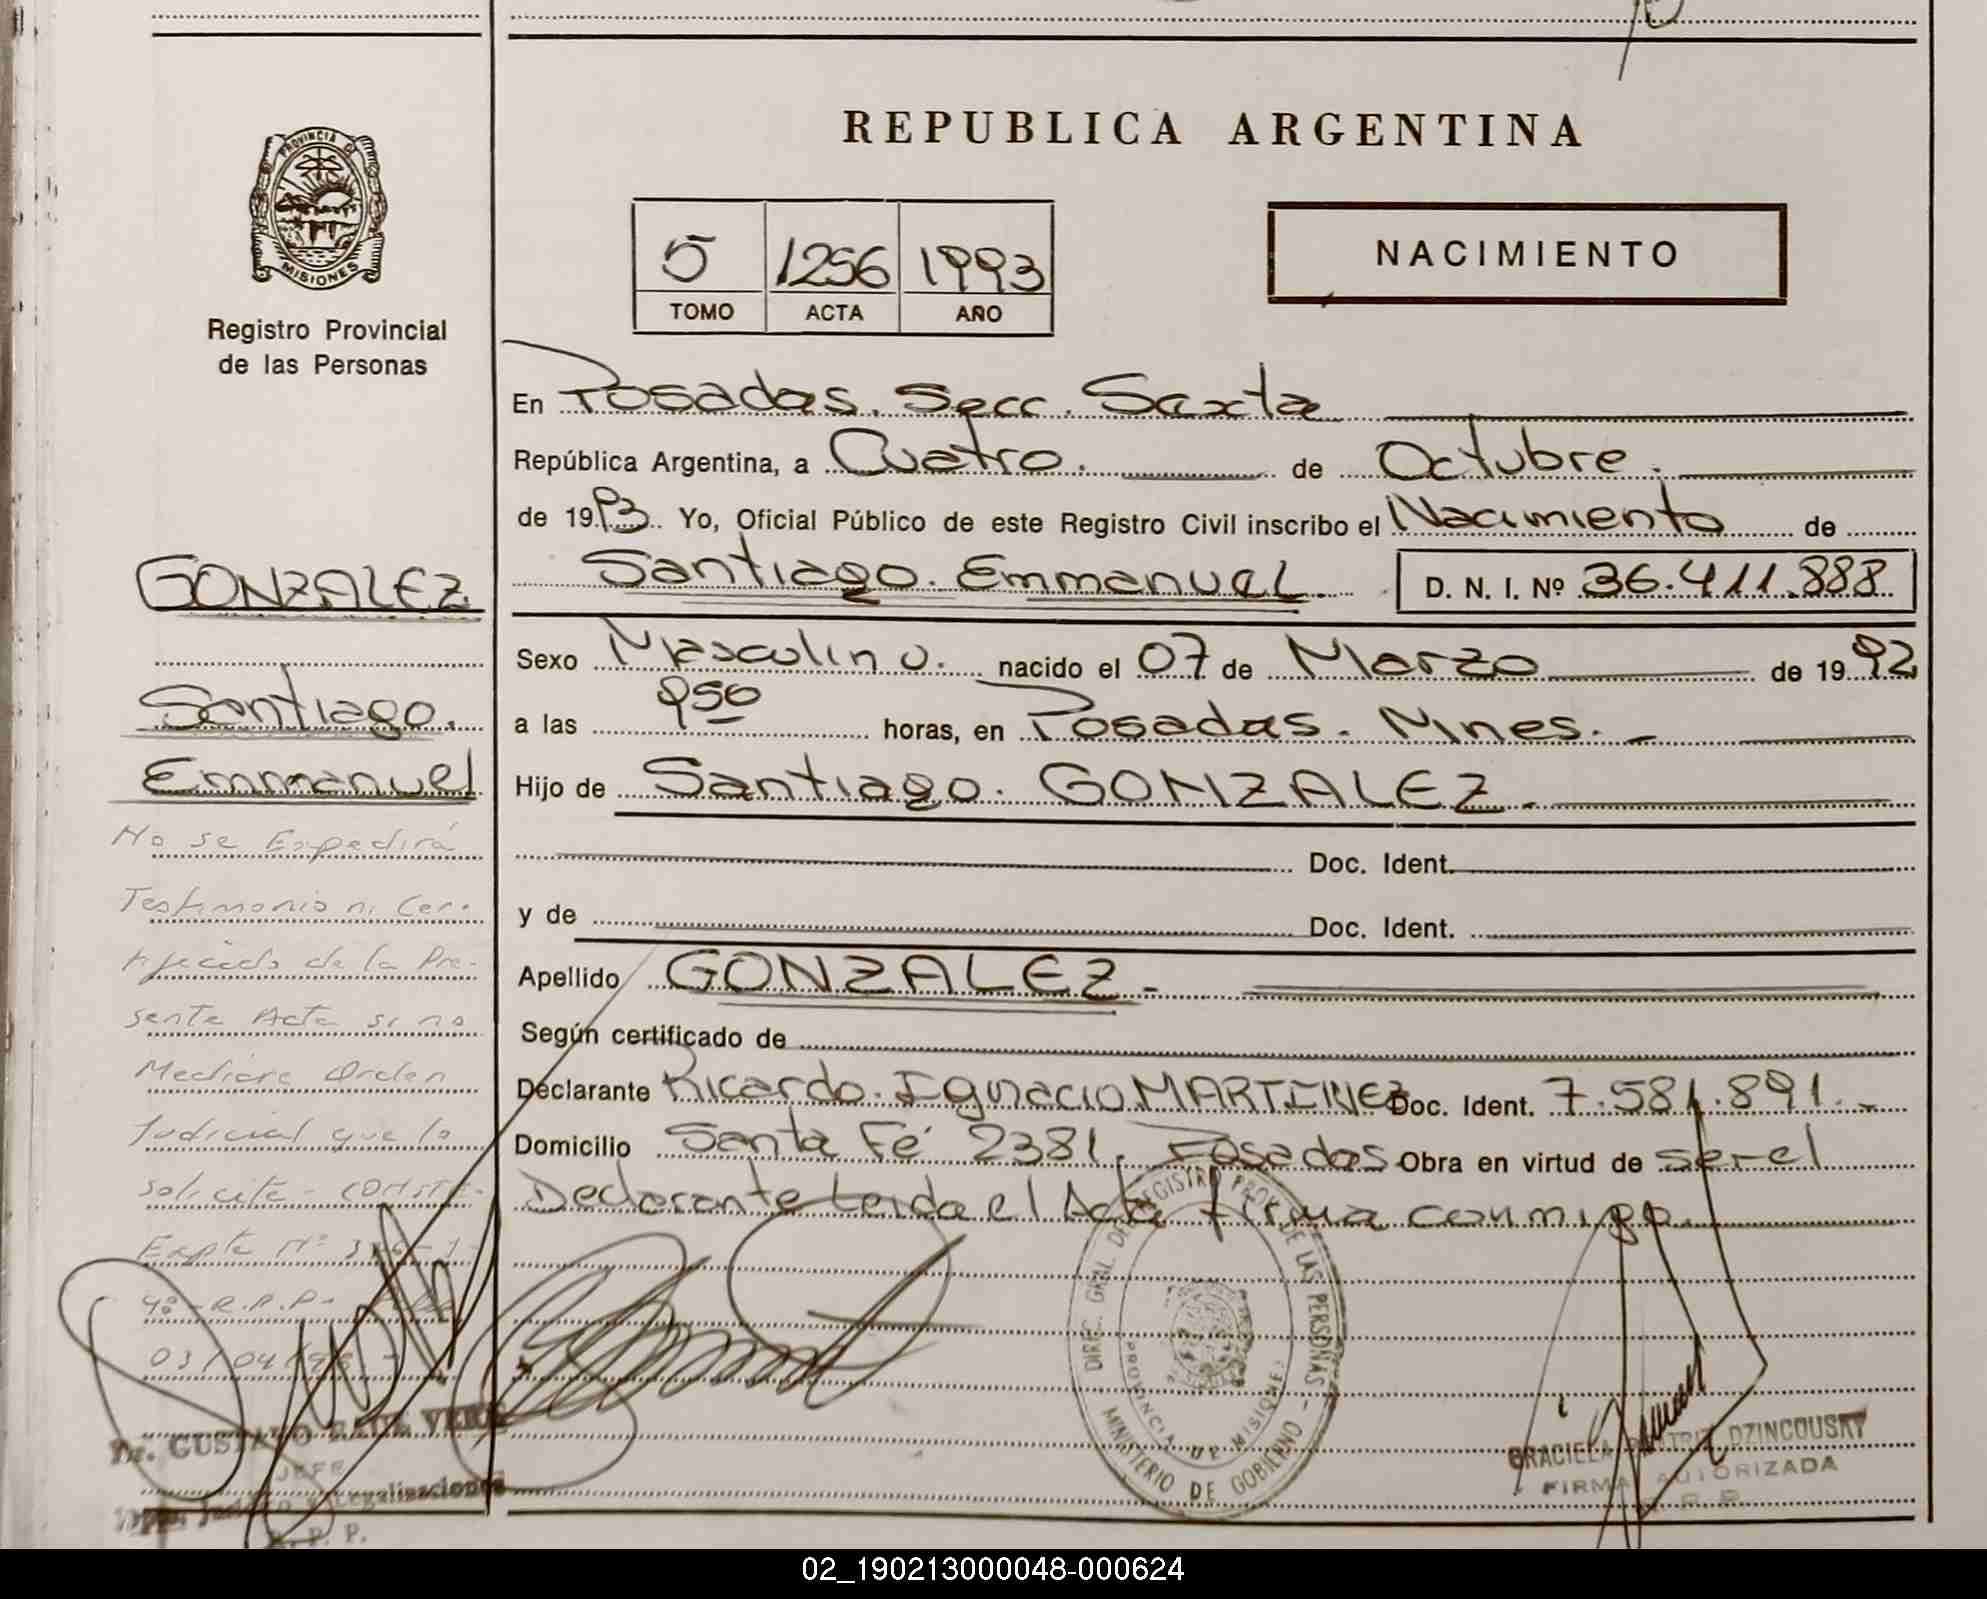 PROVINCIA DE
MISIONES
Registro Provincial
de las Personas
GONZALEZ
Santiago.
Emmanuel
No se Expedirá
Testimonio ni Cer-
tificado de la Pre-
sente Acta si no
Mediare Orden
Judicial que lo
solicite - CONSTE-
Expte Nº
03/04/98
Dr. GUSTAVO
JEFE
Legalizaciones
R. P. P.
REPUBLICA ARGENTINA
5 1256 1993
TOMO ACTA AÑO
NACIMIENTO
En Posadas. Secc. Sexta
República Argentina, a Cuatro. de Octubre.
de 1993. Yo, Oficial Público de este Registro Civil inscribo el Nacimiento de
Santiago. Emmanuel. D. N. I. Nº 36.411.888
Sexo Masculino. nacido el 07 de Marzo de 1992
a las 950 horas, en Posadas. Mnes.
Hijo de Santiago. GONZALEZ.
Doc. Ident.
y de Doc. Ident.
Apellido GONZALEZ.
Según certificado de
Declarante Ricardo. Ignacio MARTINEZ Doc. Ident. 7.581.891.
Domicilio Santa Fé 2381. Posadas Obra en virtud de ser el
Declarante Leida el Acta firma conmigo.
DIREC. GRAL DE REGISTRO PROV. DE LAS PERSONAS
PROVINCIA DE MISIONES
MINISTERIO DE GOBIERNO
GRACIELA BEATRIZ DZINCOUSKY
FIRMA AUTORIZADA
R. P.
02_190213000048-000624